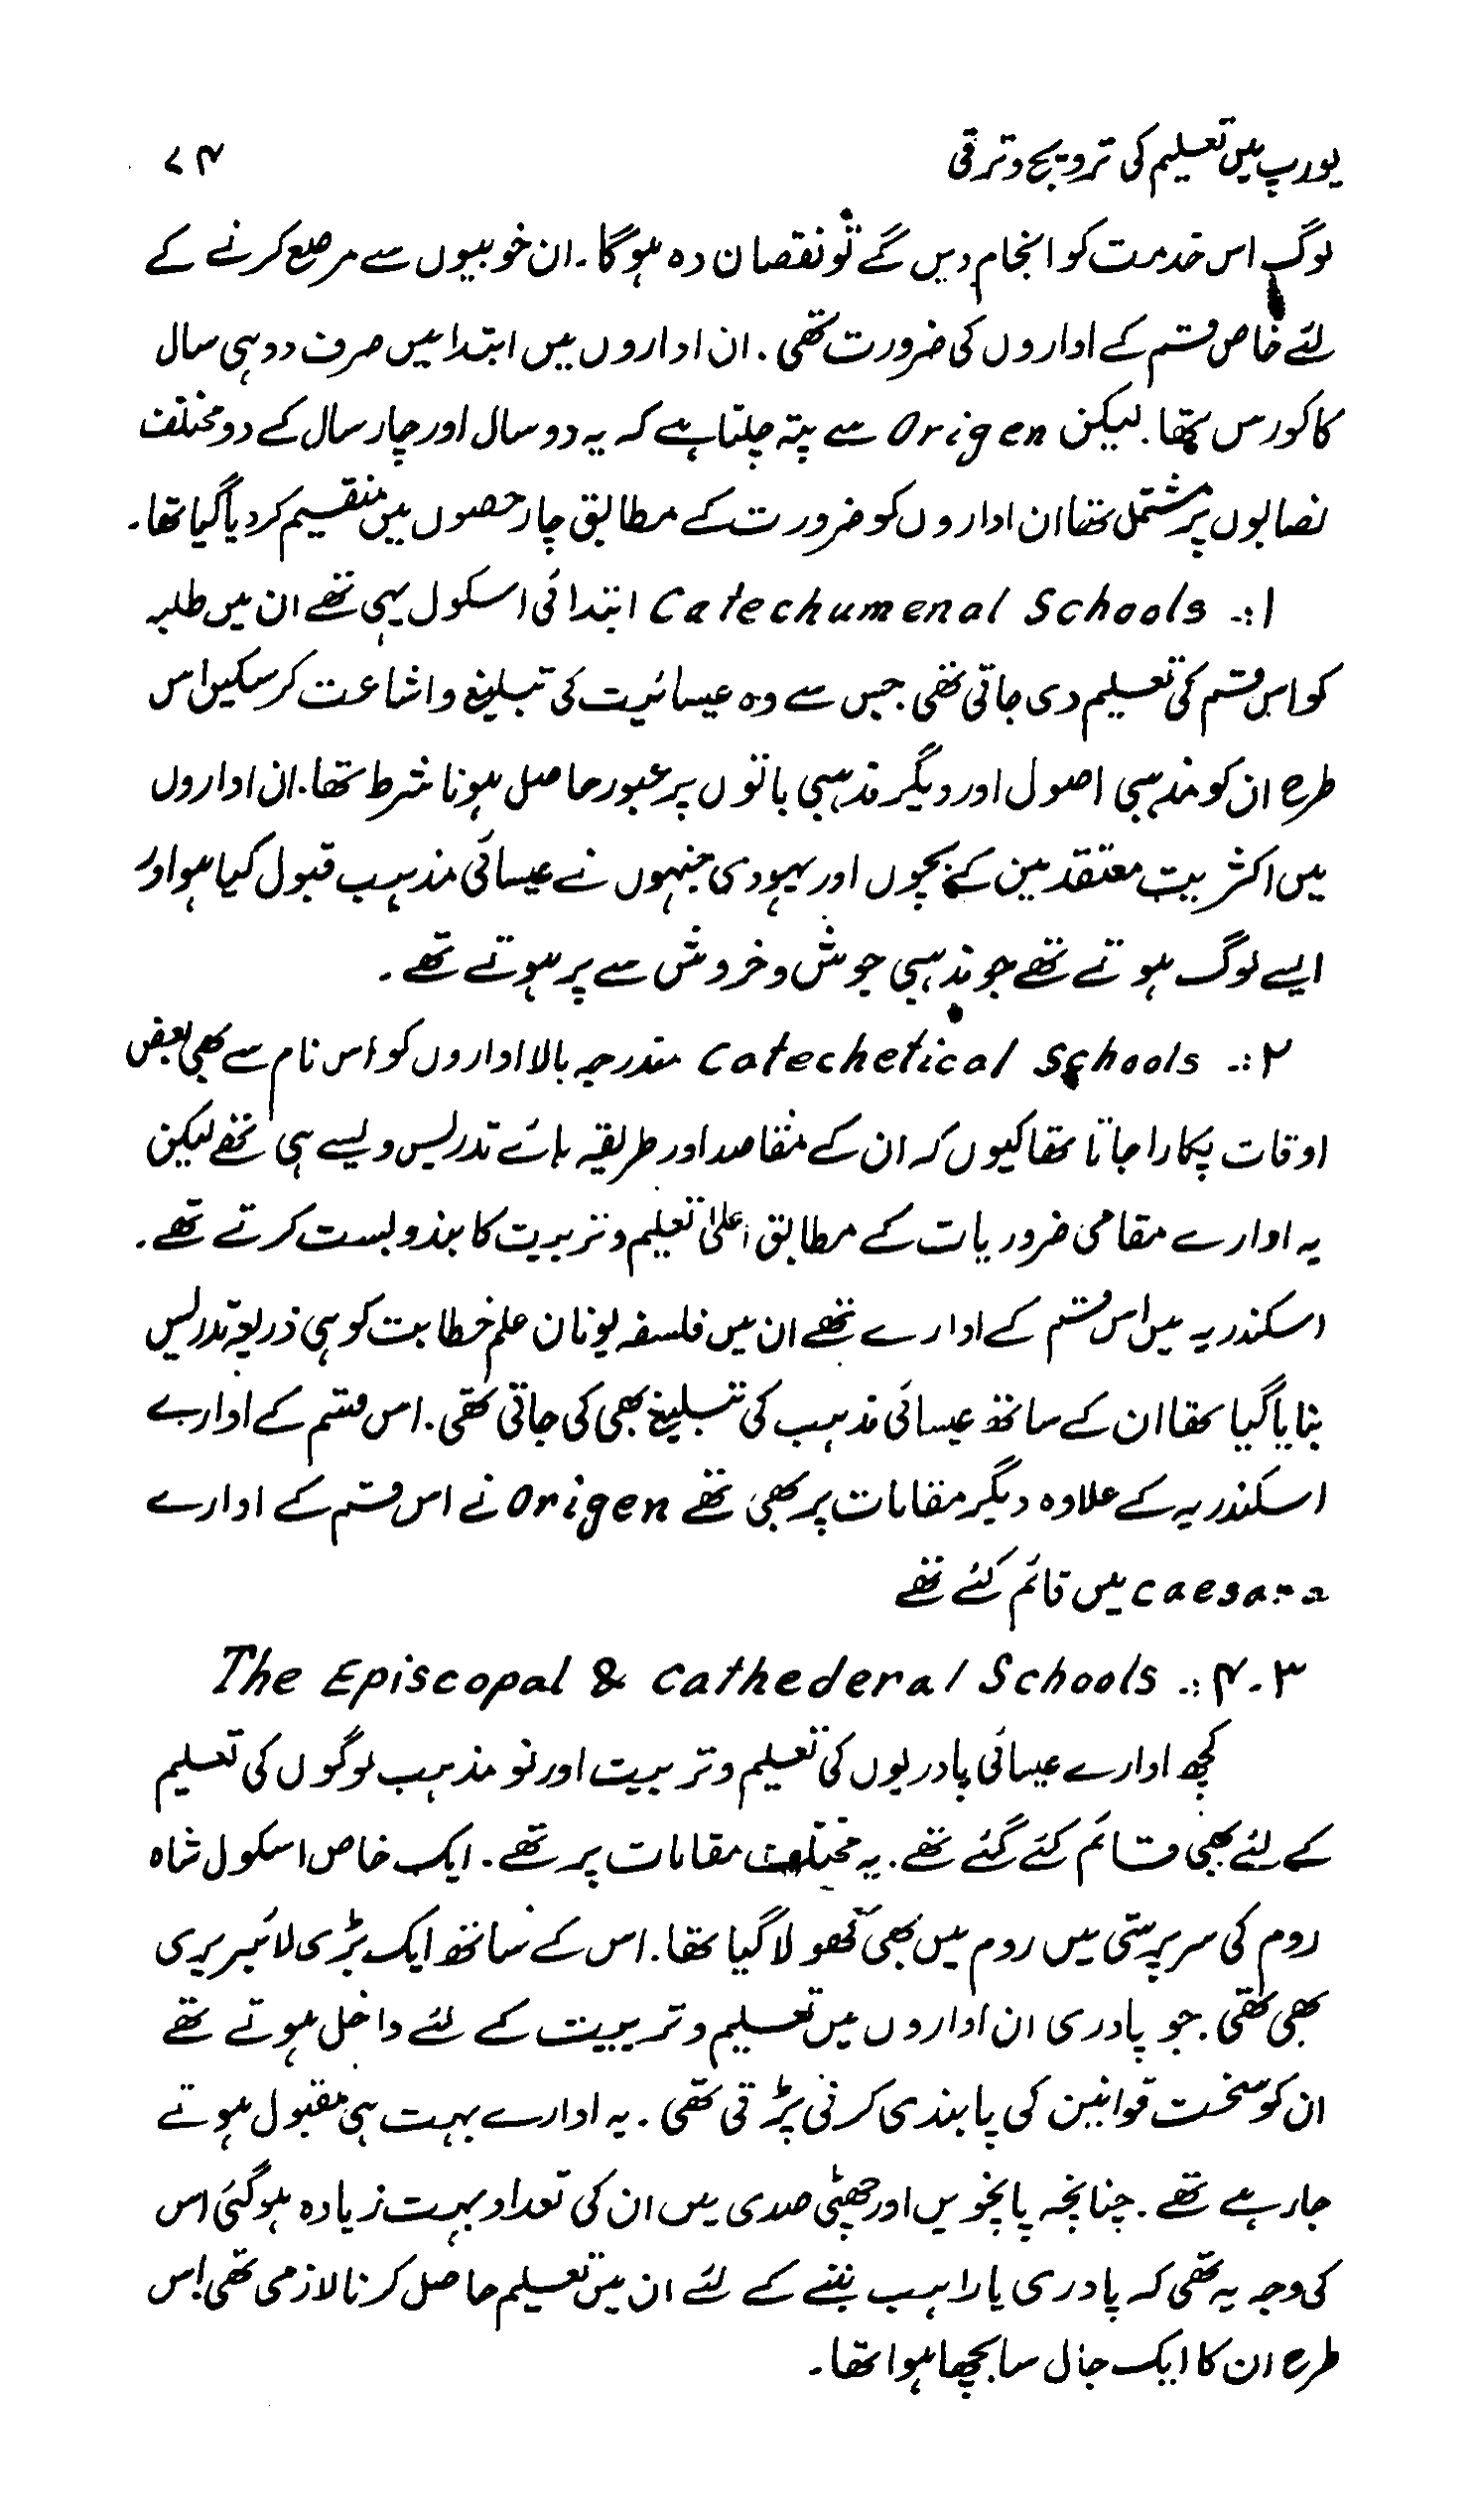 یورپ میں تعلیم کی ترویج و ترقی ۷۴
لوگ اس خدمت کو انجام دیں گے تو نقصان دہ ہوگا۔ ان خوبیوں سے مرصع کرنے کے
لئے خاص قسم کے اداروں کی ضرورت تھی۔ ان اداروں میں ابتدا میں صرف دو ہی سال
کا کورس تھا۔ لیکن Origen سے پتہ چلتا ہے کہ یہ دو سال اور چار سال کے دو مختلف
نصابوں پر مشتمل تھا ان اداروں کو ضرورت کے مطابق چار حصوں میں منقسیم کر دیا گیا تھا۔
۱:۔ Catechumenal Schools ابتدائی اسکول یہی تھے ان میں طلبہ
کو اس قسم کی تعلیم دی جاتی تھی جس سے وہ عیسائیت کی تبلیغ و اشاعت کر سکیں اس
طرح ان کو مذہبی اصول اور دیگر مذہبی باتوں پر عبور حاصل ہونا شرط تھا۔ ان اداروں
میں اکثریت معتقدین کے بچوں اور یہودی جنہوں نے عیسائی مذہب قبول کیا ہو اور
ایسے لوگ ہوتے تھے جو مذہبی جوش و خروش سے پر ہوتے تھے۔
۲:۔ Catechetical Schools مندرجہ بالا اداروں کو اس نام سے بھی بعض
اوقات پکارا جاتا تھا کیوں کہ ان کے مقاصد اور طریقہ ہائے تدریس ویسے ہی تھے لیکن
یہ ادارے مقامی ضروریات کے مطابق اعلیٰ تعلیم و تربیت کا بندوبست کرتے تھے۔
اسکندریہ میں اس قسم کے ادارے تھے ان میں فلسفہ یونان علم خطابت کو ہی ذریعۂ تدریس
بنایا گیا تھا ان کے ساتھ عیسائی مذہب کی تبلیغ بھی کی جاتی تھی۔ اس قسم کے ادارے
اسکندریہ کے علاوہ دیگر مقامات پر بھی تھے Origen نے اس قسم کے ادارے
caesara میں قائم کئے تھے
۳۔۴:۔ The Episcopal & Cathederal Schools
کچھ ادارے عیسائی پادریوں کی تعلیم و تربیت اور نو مذہب لوگوں کی تعلیم
کے لئے بھی قائم کئے گئے تھے۔ یہ مختلف مقامات پر تھے۔ ایک خاص اسکول شاہ
روم کی سرپرستی میں روم میں بھی کھولا گیا تھا۔ اس کے ساتھ ایک بڑی لائبریری
بھی تھی۔ جو پادری ان اداروں میں تعلیم و تربیت کے لئے داخل ہوتے تھے
ان کو سخت قوانین کی پابندی کرنی پڑتی تھی۔ یہ ادارے بہت ہی مقبول ہوتے
جا رہے تھے۔ چنانچہ پانچویں اور چھٹی صدی میں ان کی تعداد بہت زیادہ ہوگئی اس
کی وجہ یہ تھی کہ پادری یا راہب بننے کے لئے ان میں تعلیم حاصل کرنا لازمی تھی اس
طرح ان کا ایک جال سا بچھا ہوا تھا۔